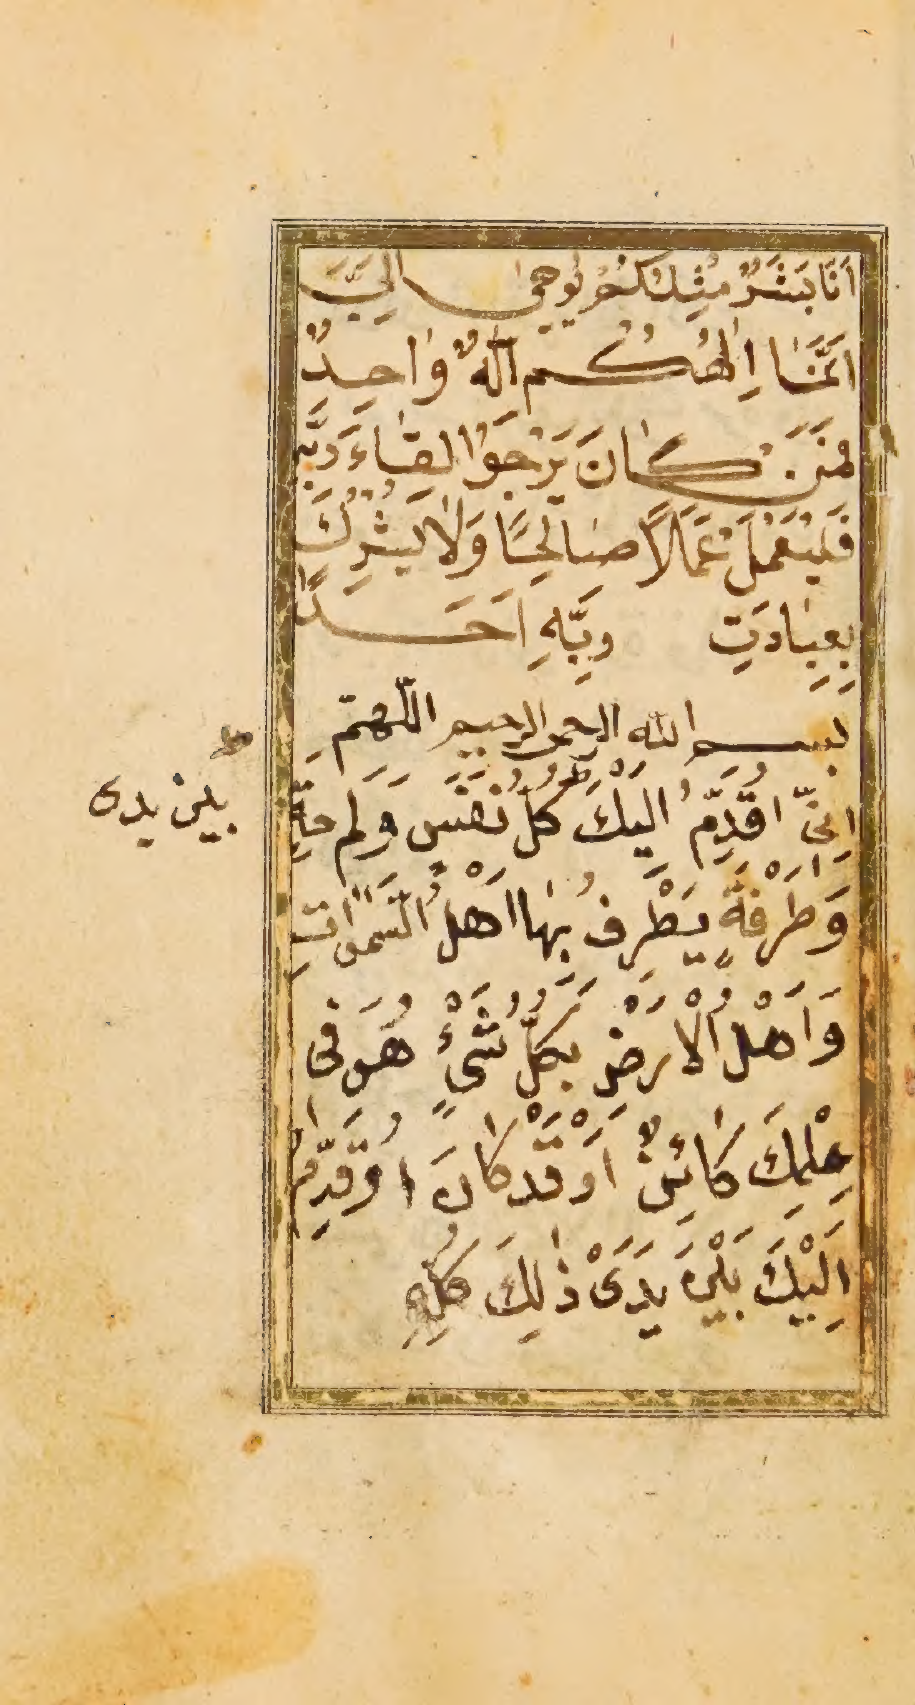 اَنَا بَشَرٌ مِثْلُكُمْ يُوحٰى اِلَيَّ
اَنَّمَا اِلٰهُكُمْ اِلٰهٌ وَاحِدٌ
فَمَنْ كَانَ يَرْجُوا لِقَاءَ رَبِّهِ
فَلْيَعْمَلْ عَمَلاً صَالِحًا وَلاٰ يُشْرِكْ
بِعِبَادَتِ رَبِّهِ اَحَدًا
بسم الله الرحمن الرحيم اللّهمّ
اِنّى اُقَدِّمُ اِلَيْكَ كُلِّ نَفَسٍ وَلَمحَةٍ
وَطَرْفَةٍ يَطْرِفُ بِهَا اَهْلُ السَّمٰوَاتِ
وَاَهْلُ الْاَرْضِ بِكُلِّ شَىْءٍ هُوَ فى
عِلْمِكَ كَائِنٌ اَوْ قَدْ كَانَ اُوقَدِّمُ
اِلَيْكَ بَيْنَ يَدَىْ ذٰلِكَ كُلِّهِ
بين يدى